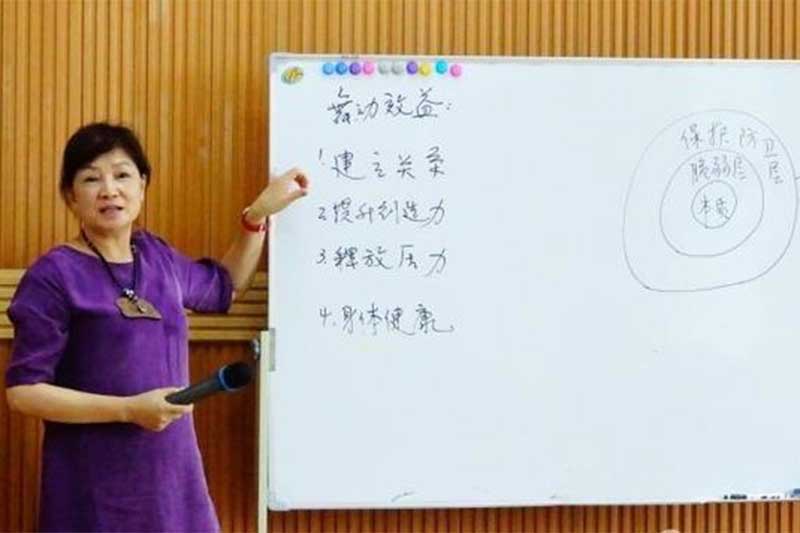 舞动效益:
1.建立关系
2.提升创造力
3.释放压力
4.身体健康
保护防卫层
脆弱层
本质